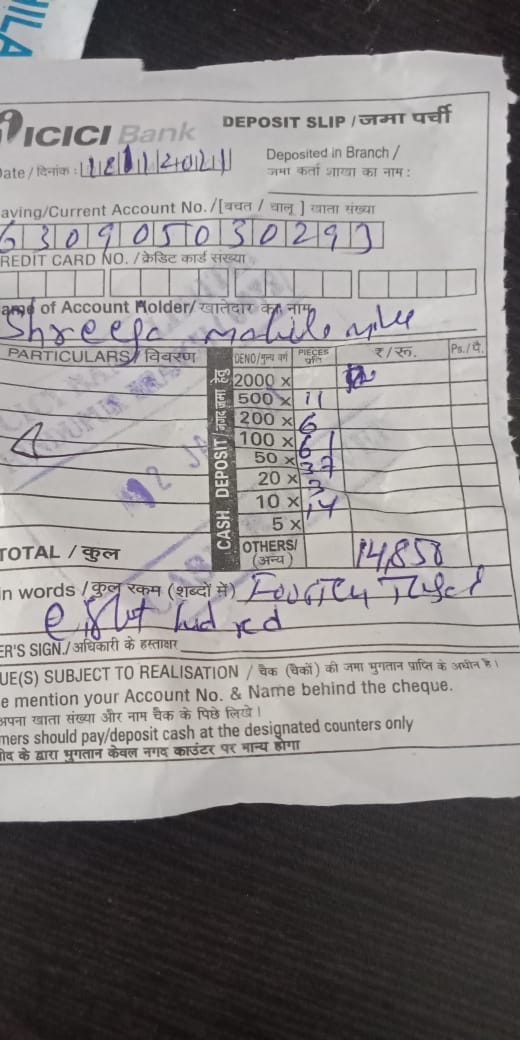 ICICI Bank
DEPOSIT SLIP / जमा पर्ची
Date / दिनांक :
Deposited in Branch /
जमा कर्ता शाखा का नाम :
aving/Current Account No. /[बचत / चालू ] खाता संख्या
REDIT CARD NO. / क्रेडिट कार्ड संख्या
ame of Account Holder/ खातेदार का नाम
Shreeja mobile
PARTICULARS / विवरण DENO/मुल्य वर्ग PIECES प्रति ₹ / रू. Ps./ पै.
CASH DEPOSIT/नगद जमा हेतु
2000 ×
500 × 11
200 × 6
100 × 61
50 × 37
20 × 3
10 × 14
5 ×
TOTAL / कुल OTHERS/ (अन्य) 14,858
in words / कुल रकम (शब्दों में)
ER'S SIGN./ अधिकारी के हस्ताक्षर
UE(S) SUBJECT TO REALISATION / चैक (चैकों) की जमा भुगतान प्राप्ति के अधीन है।
e mention your Account No. & Name behind the cheque.
अपना खाता संख्या और नाम चैक के पिछे लिखे।
mers should pay/deposit cash at the designated counters only
के द्वारा भुगतान केवल नगद काउंटर पर मान्य होगा